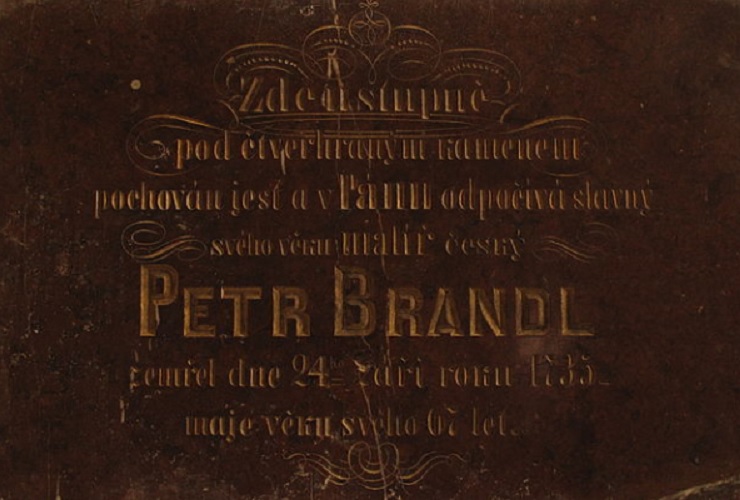 Zde
pod čtverhraným kamenem
pochován jest a v Pánu odpočívá slavný
svého věku malíř český
PETR BRANDL
zemřel dne 24ho září roku 1735.
maje věku svého 67 let.